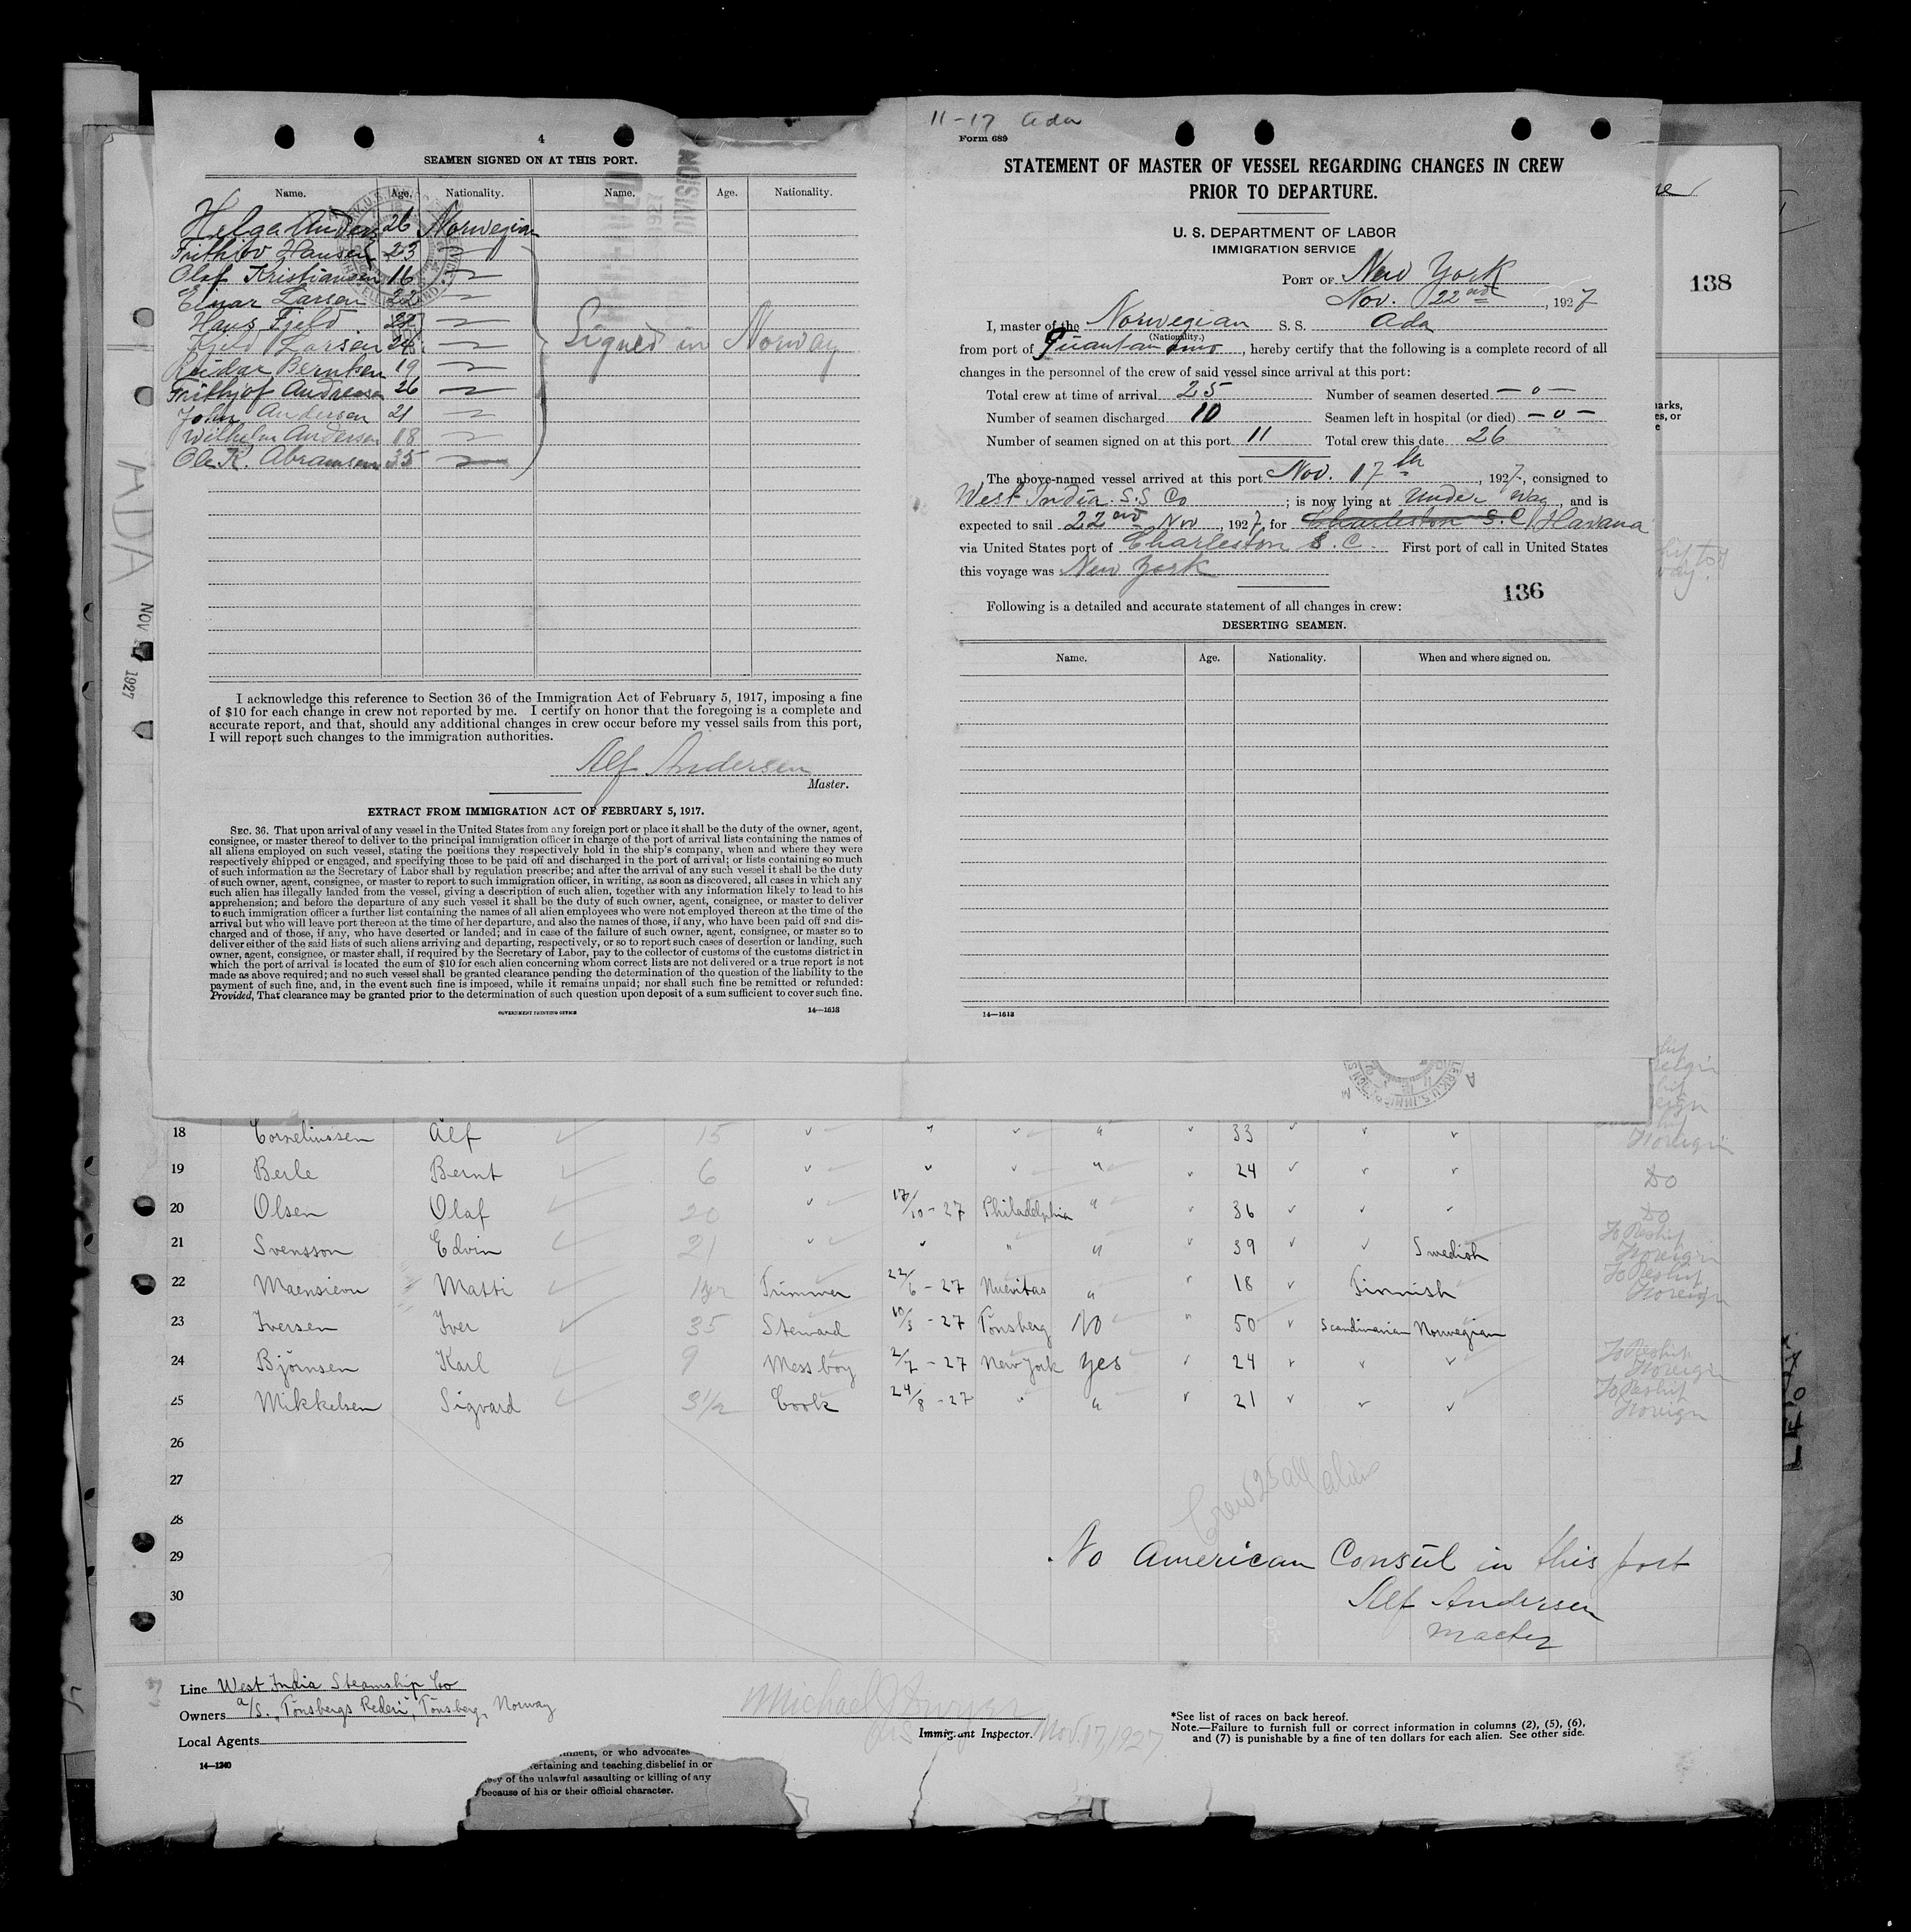 4
SEAMEN SIGNED ON AT THIS PORT.
Name. Age. Nationality. Name. Age. Nationality.
Helge Anders 26 Norwegian
Frithjov Hansen 23
Olaf Kristiansen 16
Einar Larsen 22
Hans Fjeld
Larsen 24
Reidar Berntsen 19
Frithjof Andreasen 26
John Andersen 21
Wilhelm Andersen 18
Ole K. Abramsen 35
Signed in Norway
I acknowledge this reference to Section 36 of the Immigration Act of February 5, 1917, imposing a fine
of $10 for each change in crew not reported by me. I certify on honor that the foregoing is a complete and
accurate report, and that, should any additional changes in crew occur before my vessel sails from this port,
I will report such changes to the immigration authorities.
Alf Andersen
Master.
EXTRACT FROM IMMIGRATION ACT OF FEBRUARY 5, 1917.
SEC. 36. That upon arrival of any vessel in the United States from any foreign port or place it shall be the duty of the owner, agent,
consignee, or master thereof to deliver to the principal immigration officer in charge of the port of arrival lists containing the names of
all aliens employed on such vessel, stating the positions they respectively hold in the ship's company, when and where they were
respectively shipped or engaged, and specifying those to be paid off and discharged in the port of arrival; or lists containing so much
of such information as the Secretary of Labor shall by regulation prescribe; and after the arrival of any such vessel it shall be the duty
of such owner, agent, consignee, or master to report to such immigration officer, in writing, as soon as discovered, all cases in which any
such alien has illegally landed from the vessel, giving a description of such alien, together with any information likely to lead to his
apprehension; and before the departure of any such vessel it shall be the duty of such owner, agent, consignee, or master to deliver
to such immigration officer a further list containing the names of all alien employees who were not employed thereon at the time of the
arrival but who will leave port thereon at the time of her departure, and also the names of those, if any, who have been paid off and dis-
charged and of those, if any, who have deserted or landed; and in case of the failure of such owner, agent, consignee, or master so to
deliver either of the said lists of such aliens arriving and departing, respectively, or so to report such cases of desertion or landing, such
owner, agent, consignee, or master shall, if required by the Secretary of Labor, pay to the collector of customs of the customs district in
which the port of arrival is located the sum of $10 for each alien concerning whom correct lists are not delivered or a true report is not
made as above required; and no such vessel shall be granted clearance pending the determination of the question of the liability to the
payment of such fine, and, in the event such fine is imposed, while it remains unpaid; nor shall such fine be remitted or refunded:
Provided, That clearance may be granted prior to the determination of such question upon deposit of a sum sufficient to cover such fine.
GOVERNMENT PRINTING OFFICE 14—1613
11-17 Ada
Form 689
STATEMENT OF MASTER OF VESSEL REGARDING CHANGES IN CREW
PRIOR TO DEPARTURE.
U. S. DEPARTMENT OF LABOR
IMMIGRATION SERVICE
PORT OF New York
Nov. 22nd, 1927
I, master of the Norwegian S. S. Ada
(Nationality.)
from port of Guantanamo, hereby certify that the following is a complete record of all
changes in the personnel of the crew of said vessel since arrival at this port:
Total crew at time of arrival 25 Number of seamen deserted — 0 —
Number of seamen discharged 10 Seamen left in hospital (or died) — 0 —
Number of seamen signed on at this port 11 Total crew this date 26
The above-named vessel arrived at this port Nov. 17th, 1927, consigned to
West India S.S Co; is now lying at Under Way, and is
expected to sail 22nd Nov, 1927, for Charleston S.C / Havana
via United States port of Charleston S.C. First port of call in United States
this voyage was New York
136
Following is a detailed and accurate statement of all changes in crew:
DESERTING SEAMEN.
Name. Age. Nationality. When and where signed on.
14—1613
138
ADA
NOV 1927
18 Corneliussen Alf 15 " " " " " 33
Foreign
19 Berle Bernt 6 " " " " " 24 Do
20 Olsen Olaf 20 " 17/10 - 27 Philadelphia " " 36 Do
21 Svensson Edvin 21 " " " " 39 Swedish To Reship Foreign
22 Maensieon Matti Trimmer 22/6 - 27 Nuevitas " " 18 Finnish To Reship Foreign
23 Iversen Iver 35 Steward 10/5 - 27 Tönsberg No " 50 Scandinavian Norwegian
24 Bjørnsen Karl 9 Mess boy 2/7 - 27 New York yes " 24 To Reship Foreign
25 Mikkelsen Sigvard 3 1/2 Cook 24/8 - 27 " " " 21 To Reship Foreign
26
27
Crew 25 all alien
28
29 No American Consul in this port
30 Alf Andersen
Master
Line West India Steamship Co
Owners a/s. "Tönsbergs Rederi", Tönsberg, Norway
Local Agents
14—1240
Michael Dwyer
Immigrant Inspector. Nov. 17, 1927
*See list of races on back hereof.
Note.—Failure to furnish full or correct information in columns (2), (5), (6),
and (7) is punishable by a fine of ten dollars for each alien. See other side.
or who advocates
ertaining and teaching disbelief in or
of the unlawful assaulting or killing of any
because of his or their official character.